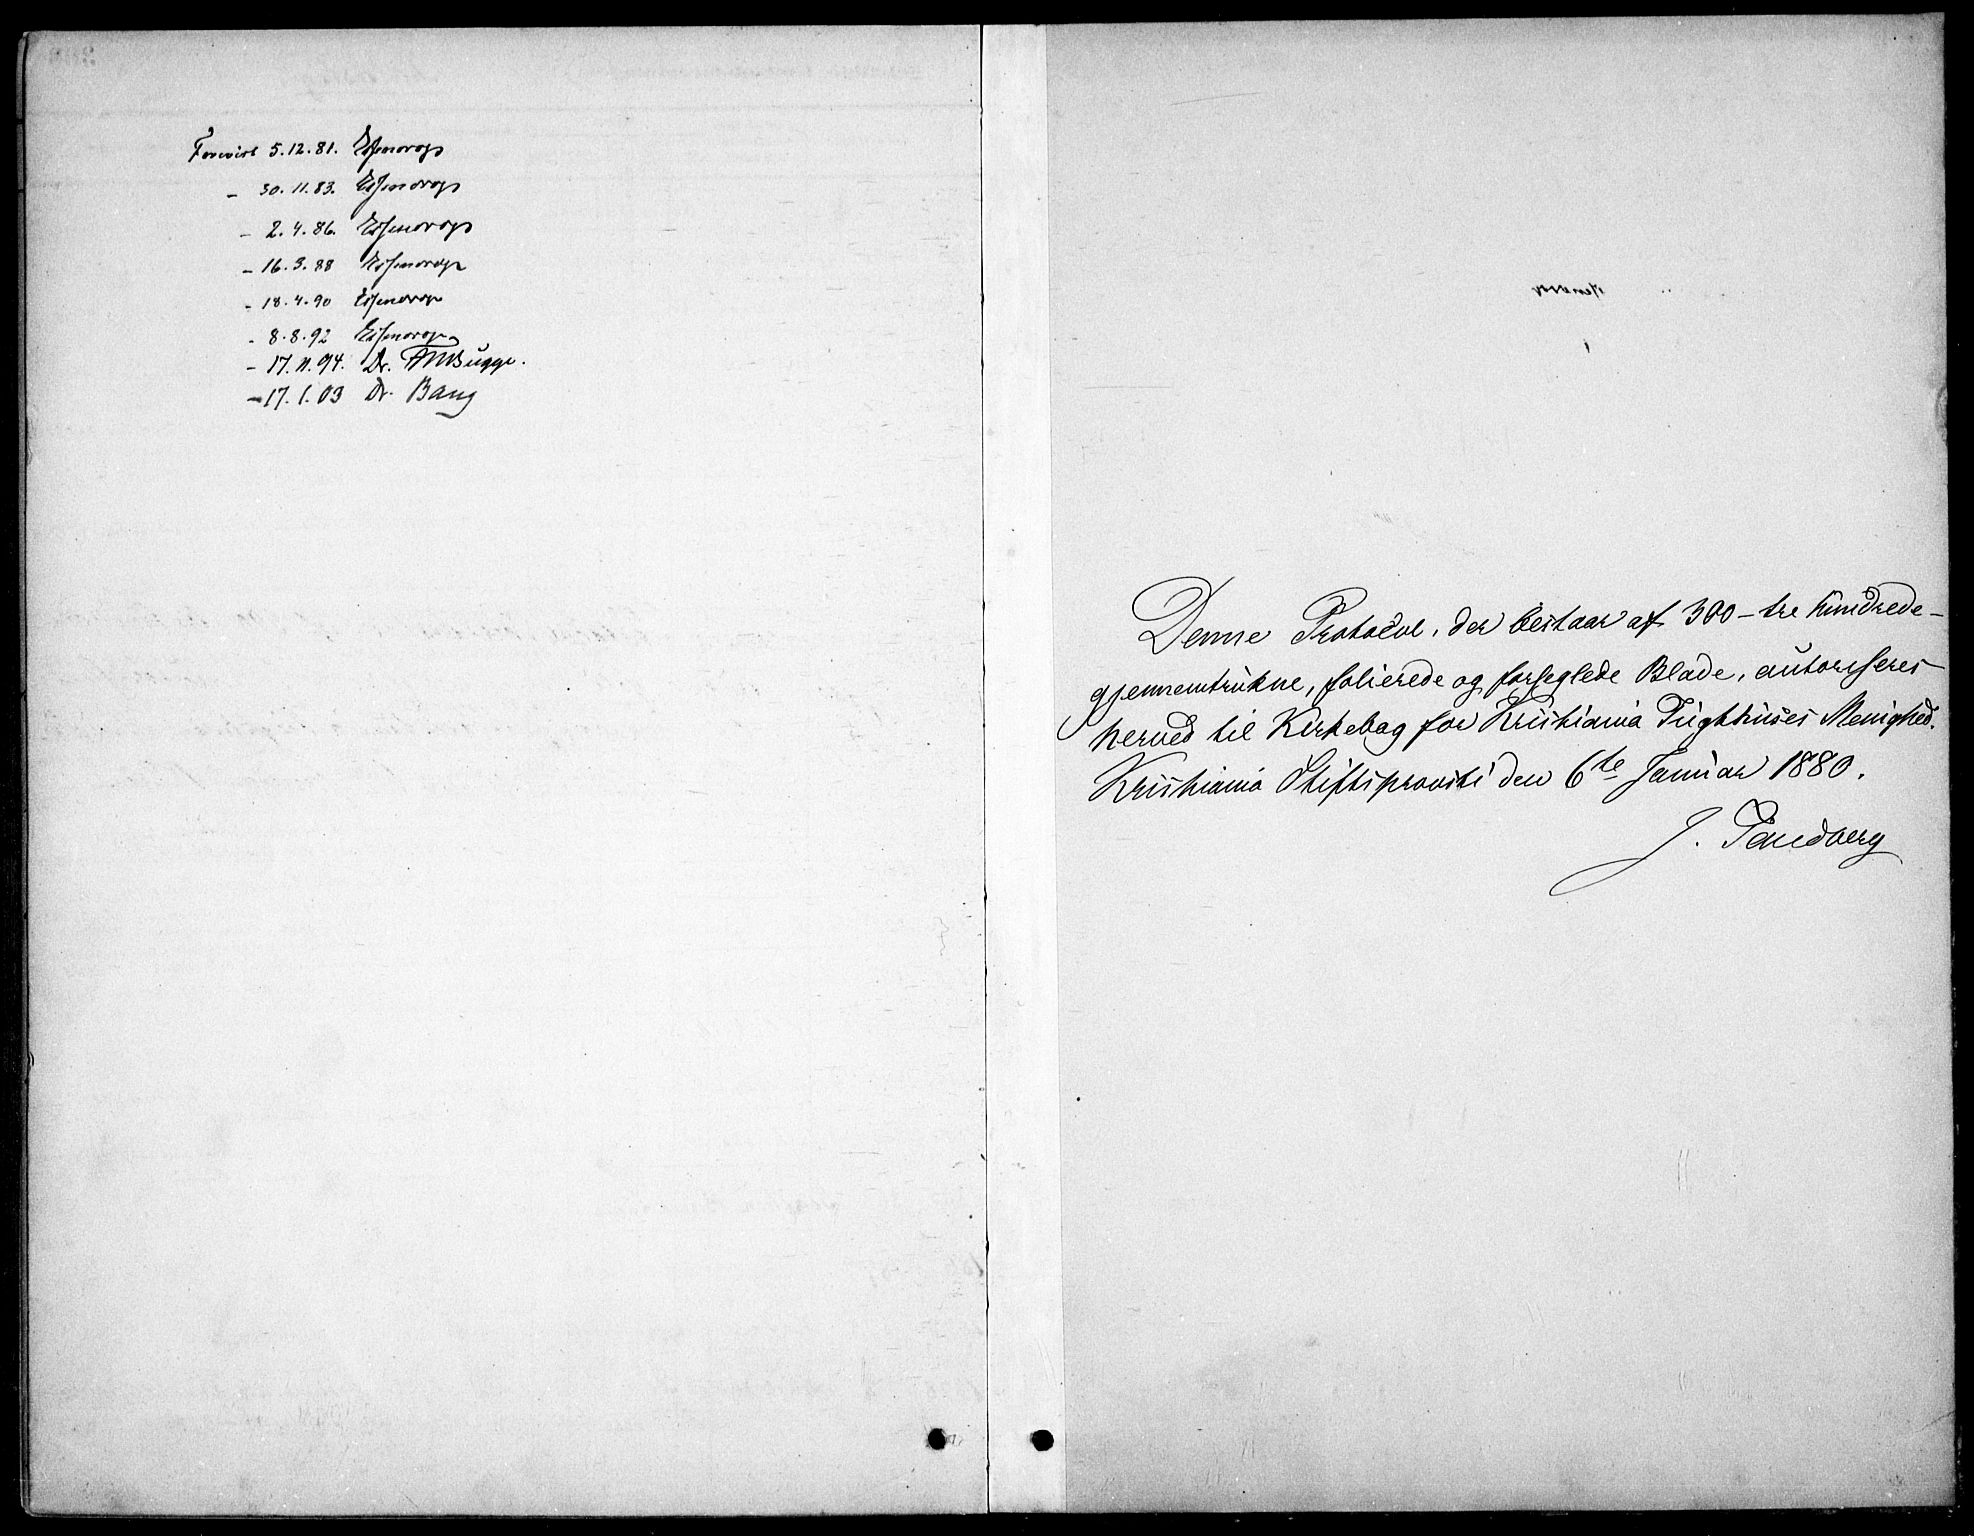 Forevist 5.12.81. Essendrop
- 30.11.83. Essendrop
- 2.4.86. Essendrop
- 16.3.88 Essendrop
- 18.4.90 Essendrop
- 8.8.92 Essendrop
- 17.11.94. Dr. AMBugge.
- 17.1.03 Dr. Bang
Denne Protocol, der bestaar af 300 - tre hundrede -
gjennemtrukne, folierede og forseglede Blade, autoriseres
herved til Kirkebog for Kristiania Tugthuses Menighed.
Kristiania Stiftsprovsti den 6te Januar 1880.
J. Tandberg